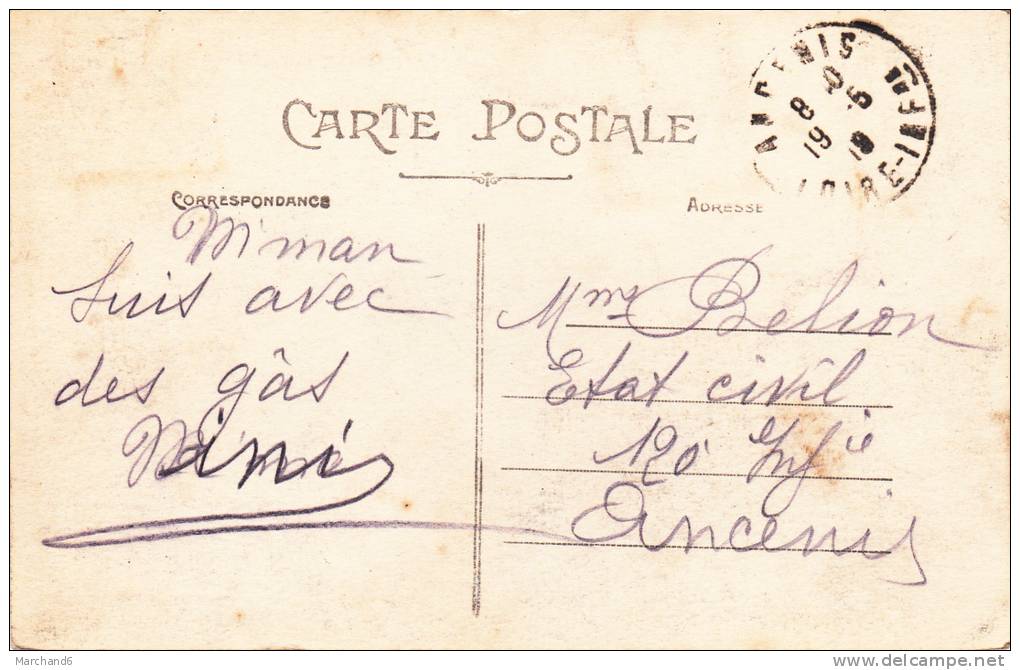 CARTE POSTALE
CORRESPONDANCE
ADRESSE
ANCENIS
LOIRE-INFRE
8
19
Miman
suis avec
des gâs
Mimi
Mme Belion
Etat civil
120 Infie
Ancenis
Marchand6
delcampe.net